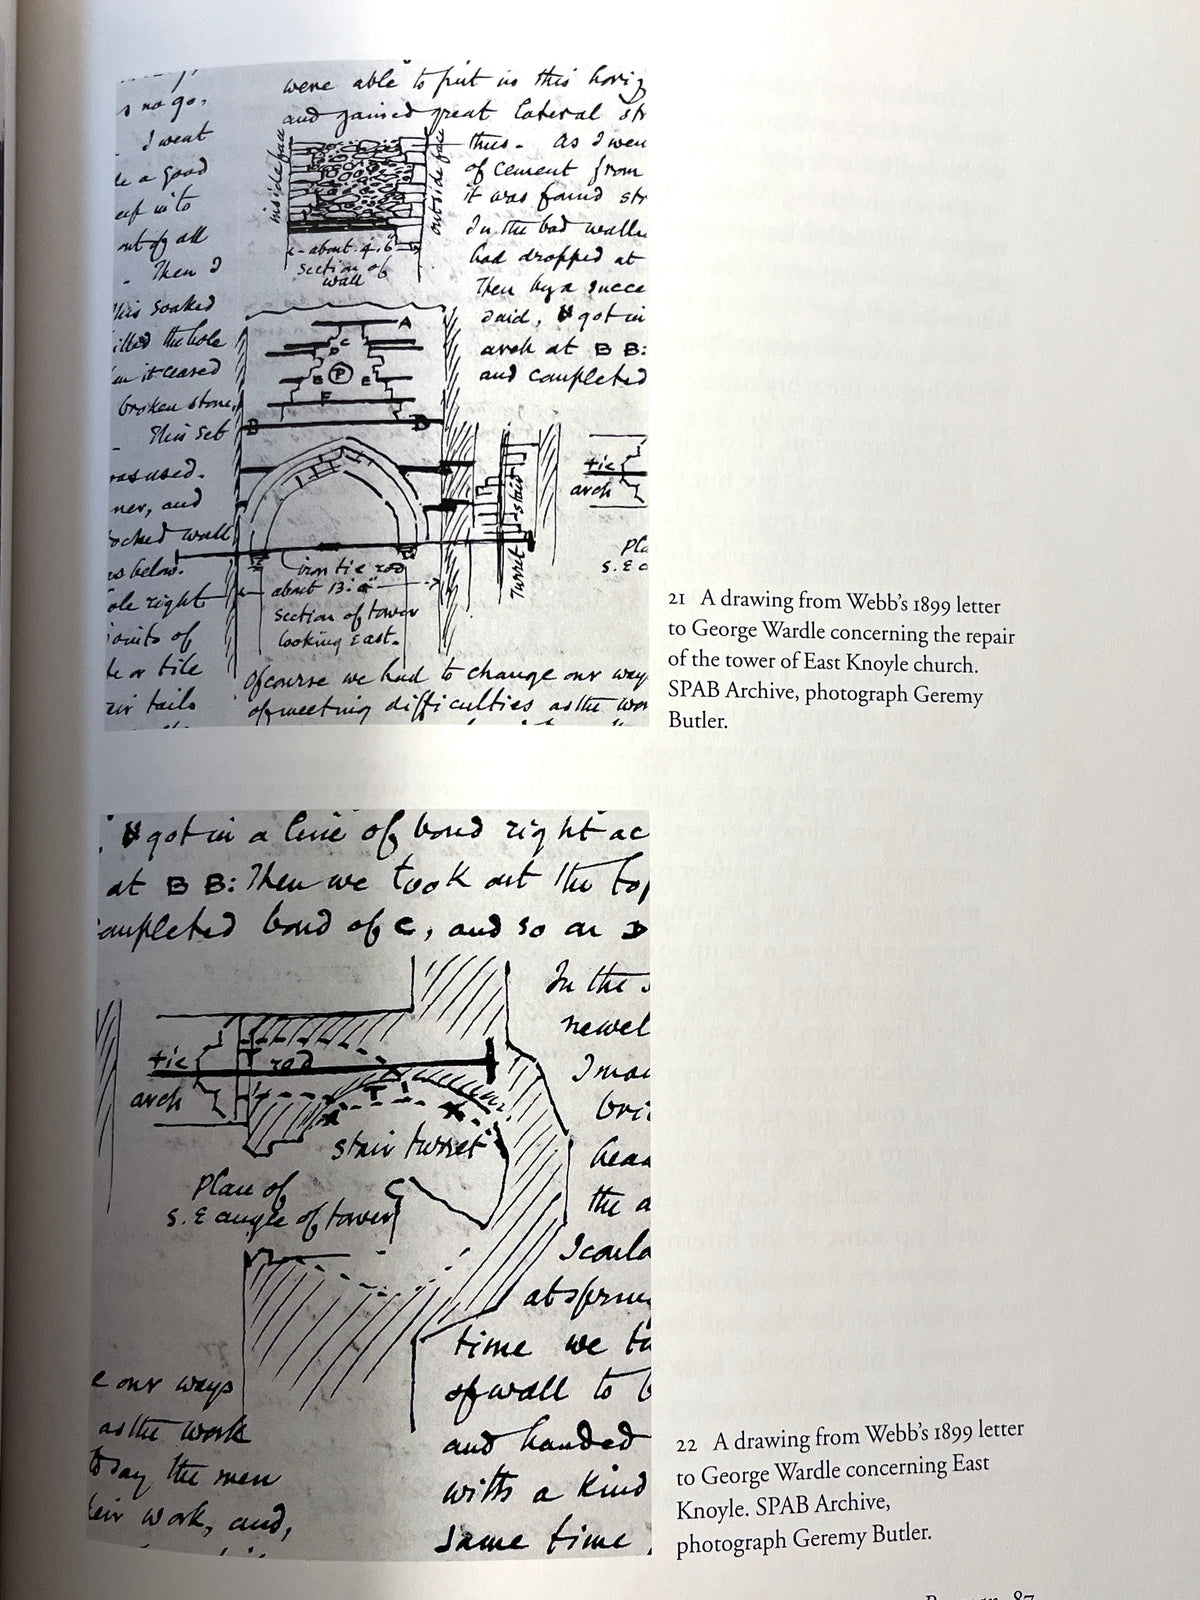 were able to put in this horiz
and gained great lateral str
s no go,
I went
a good
into
out of all
Then I
this soaked
the hole
it ceased
broken stone,
This set
used.
ner, and
wall
below.
right
joints of
or tile
tails
inside face
outside face
about 4.6"
section of
wall
thus. As I wen
of cement from
it was found str
In the bad walls
had dropped at
Then by a succe
said, got in
arch at B B:
and completed
A
C
D
B P E
F
B D
iron tie rod
about 13:
section of tower
looking East.
turret stair
tie
arch
Pla
S.E c
Of course we had to change our way
of meeting difficulties as the wor
21 A drawing from Webb's 1899 letter
to George Wardle concerning the repair
of the tower of East Knoyle church.
SPAB Archive, photograph Geremy
Butler.
got in a line of bond right ac
at B B: Then we took out the top
completed bond of C, and so on D
In the s
newel
I ma
bri
hea
the a
I could
at sprin
time we to
of wall to b
and handed
with a kind
same time
tie rod
arch
T
stair turret
Plan of
S.E angle of tower
e our ways
as the work
today the men
their work, and,
22 A drawing from Webb's 1899 letter
to George Wardle concerning East
Knoyle. SPAB Archive,
photograph Geremy Butler.
87